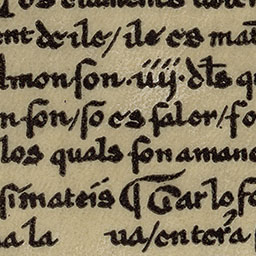 los elaments
ent de ile / ile es mat
lmon son .iiij. dls q
n son / so es saler / fo
los quals son amana
simateis ¶ Car lo fo
ua la ua / entera